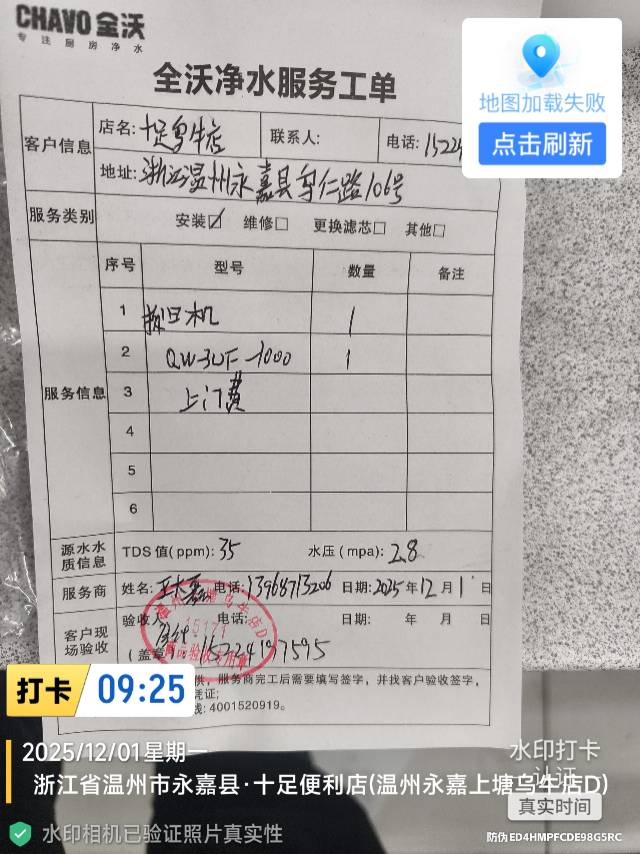 CHAVO 全沃
专注厨房净水
地图加载失败
点击刷新
全沃净水服务工单
客户信息
店名: 十足乌牛店
联系人:
电话: 15224
地址: 浙江温州永嘉县 仁路106号
服务类别
安装☑ 维修□ 更换滤芯□ 其他□
服务信息
序号 型号 数量 备注
1 机 1
2 QW-3UF-1000 1
3 上门费
4
5
6
源水水质信息
TDS 值(ppm): 35 水压(mpa): 2.8
服务商
姓名: 王 电话: 13968713206 日期: 2025年12月1日
客户现场验收
验收 电话: 日期: 年 月 日
(盖章) 15224197595
服务商完工后需要填写签字，并找客户验收签字，
凭证;
线: 4001520919。
打卡 09:25
2025/12/01 星期一
浙江省温州市永嘉县·十足便利店(温州永嘉上塘乌牛店D)
水印打卡
认证
真实时间
水印相机已验证照片真实性
防伪 ED4HMPFCDE98G5RC